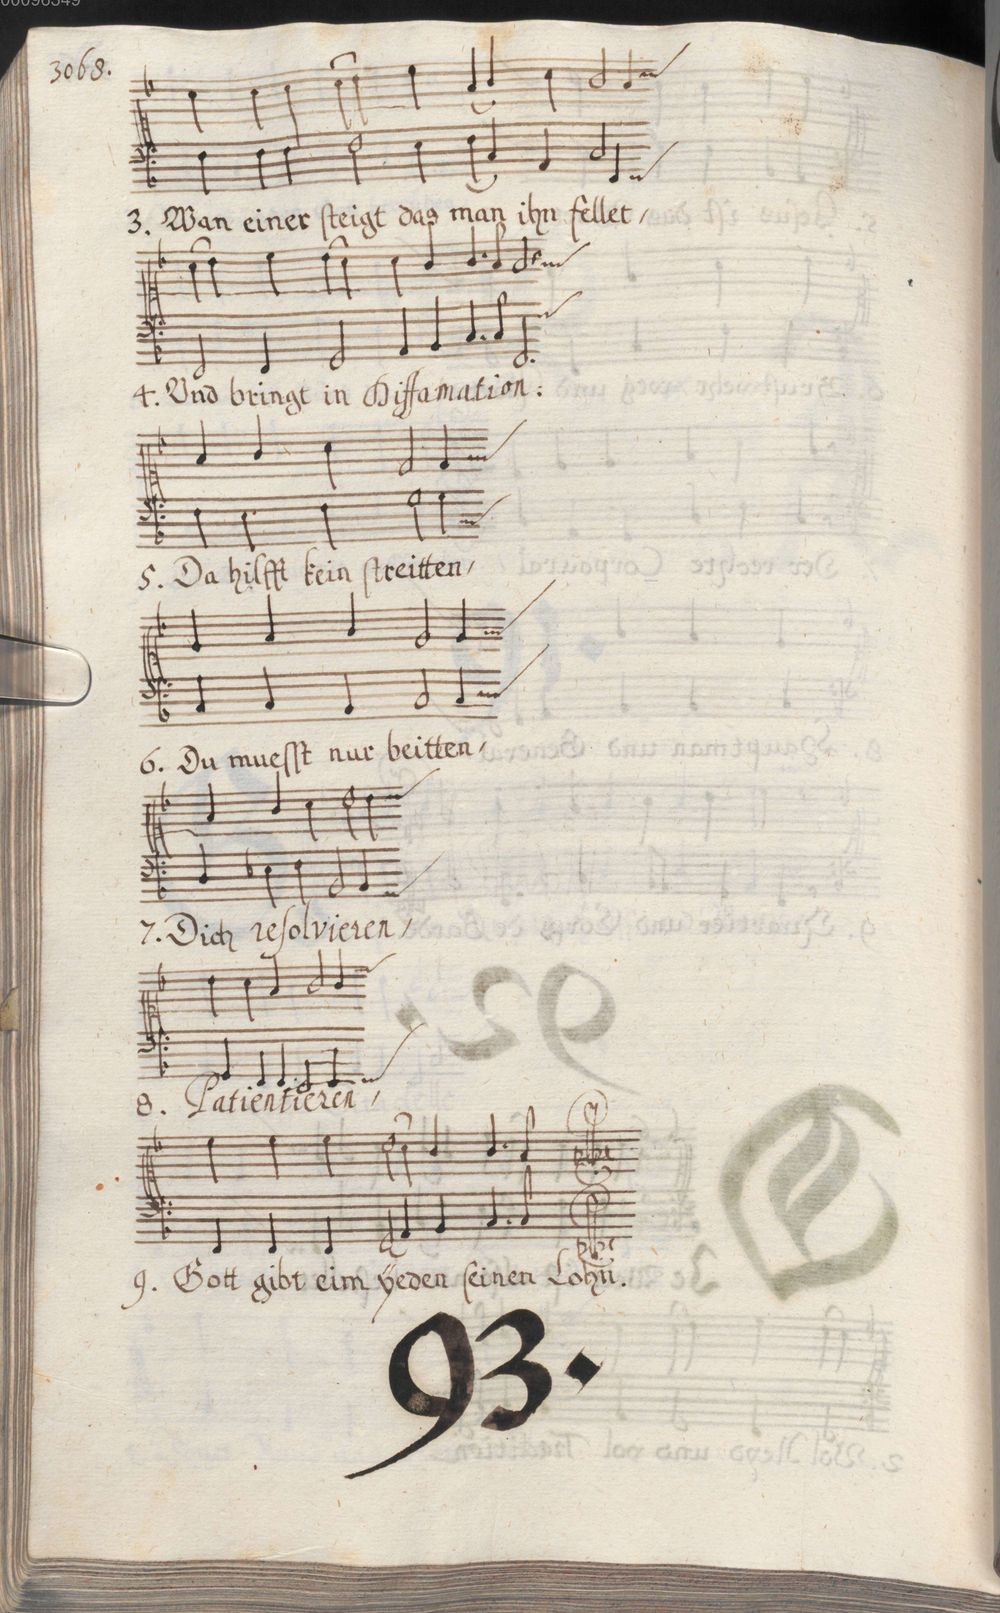 3068.
3. Wan einer steigt das man ihn fellet/
4. Und bringt in Diffamation:
5. Da hilfft kein streitten/
6. Du muesst nur beitten/
7. Dich resolvieren/
8. Patientieren/
9. Gott gibt eim ÿeden seinen Lohn.
93.